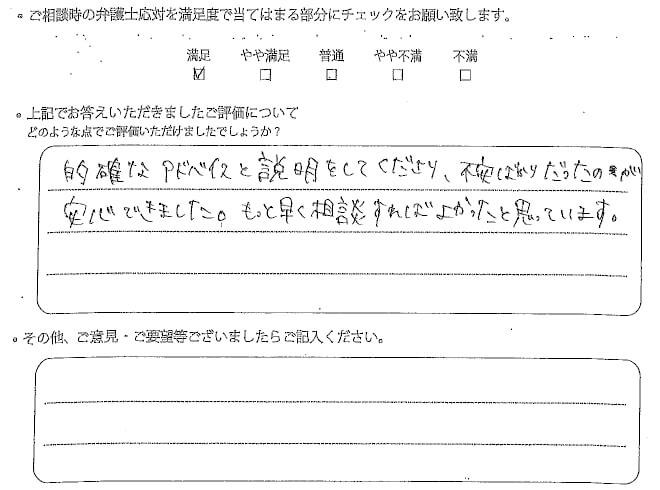 。ご相談時の弁護士応対を満足度で当てはまる部分にチェックをお願い致します。
満足 やや満足 普通 やや不満 不満
☑ □ □ □ □
。上記でお答えいただきましたご評価について
どのような点でご評価いただけましたでしょうか？
的確なアドバイスと説明をしてくださり、不安ばかりだったの が
安心できました。もっと早く相談すればよかったと思っています。
。その他、ご意見・ご要望等ございましたらご記入ください。